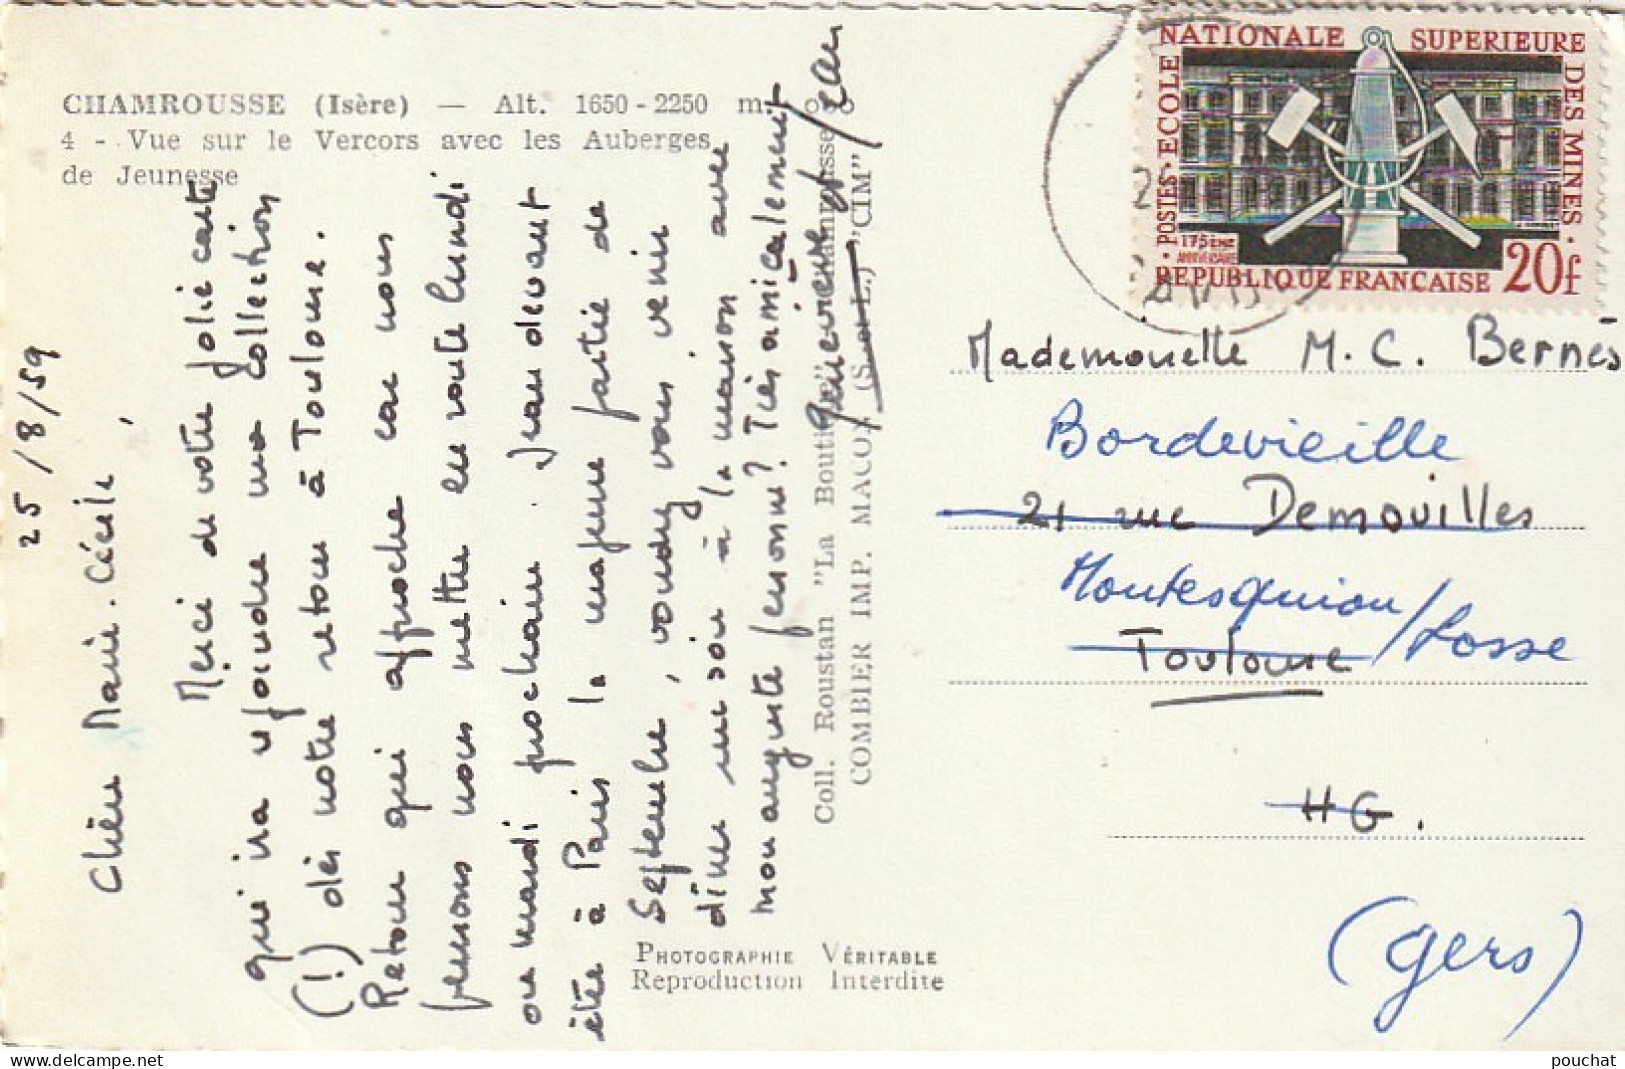 CHAMROUSSE (Isère) — Alt. 1650 - 2250 m
4 - Vue sur le Vercors avec les Auberges
de Jeunesse
25/8/59
Chère Marie-Cécile,
Merci de votre jolie carte
qui ira rejoindre ma collection
(!) dès notre retour à Toulouse.
Retour qui approche car nous
pensons nous mettre en route lundi
ou mardi prochain. Jean devant
être à Paris la majeure partie de
Septembre, voudrez vous venir
dîner un soir à la maison avec
mon auguste personne? Très amicalement
Geneviève Jean
Coll. Roustan "La Boutique" Chamrousse
COMBIER IMP. MACON (S.-et-L.) "CIM"
PHOTOGRAPHIE VÉRITABLE
Reproduction Interdite
ECOLE NATIONALE SUPERIEURE DES MINES
POSTES
175ÈME
ANNIVERSAIRE
REPUBLIQUE FRANCAISE 20f
Mademoiselle M. C. Bernès
Bordevieille
21 rue Demouilles
Montesquiou/Losse
Toulouse
HG.
(Gers)
pouchat